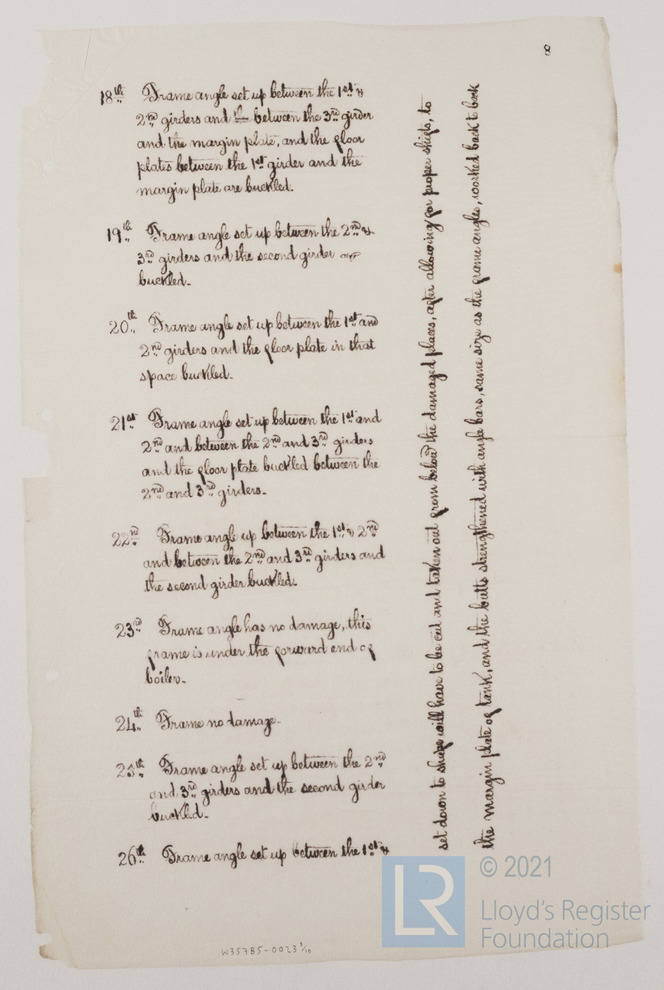 8
18th Frame angle set up between the 1st &
2nd girders and between the 3rd girder
and the margin plate, and the floor
plates between the 1st girder and the
margin plate are buckled.
19th Frame angle set up between the 2nd &
3rd girders and the second girder
buckled.
20th Frame angle set up between the 1st and
2nd girders and the floor plate in that
space buckled.
21st Frame angle set up between the 1st and
2nd and between the 2nd and 3rd girders
and the floor plate buckled between the
2nd and 3rd girders.
22nd Frame angle up between the 1st & 2nd
and between the 2nd and 3rd girders and
the second girder buckled.
23rd Frame angle has no damage, this
frame is under the forward end of
boiler.
24th Frame no damage.
25th Frame angle set up between the 2nd
and 3rd girders and the second girder
buckled.
26th Frame angle set up between the 1st &
set down to shape will have to be cut and taken out from below the damaged places, after allowing for proper shifts, to
the margin plate of tank, and the butts strengthened with angle bars, same size as the frame angles, worked back to back
W35785-0023 1/10
LR
© 2021
Lloyd's Register
Foundation